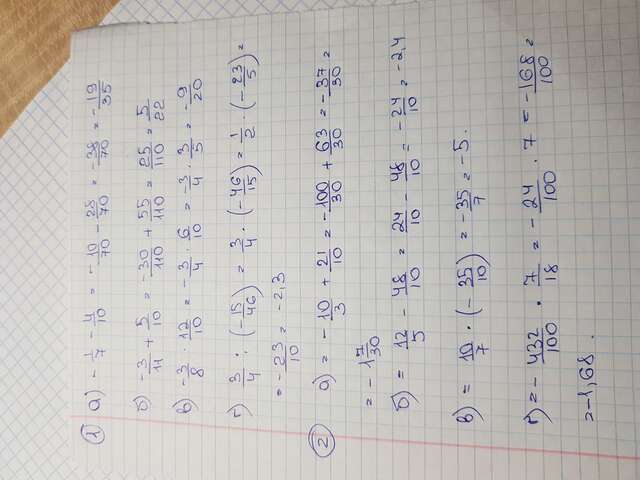 ① а) -1/7 - 4/10 = -10/70 - 28/70 = -38/70 = -19/35
б) -3/11 + 5/10 = -30/110 + 55/110 = 25/110 = 5/22
в) -3/8 · 12/10 = -3/4 · 6/10 = -3/4 · 3/5 = -9/20
г) 3/4 : (-15/46) = 3/4 · (-46/15) = 1/2 · (-23/5) =
= -23/10 = -2,3
② а) = -10/3 + 21/10 = -100/30 + 63/30 = -37/30 =
= -1 7/30
б) = 12/5 - 48/10 = 24/10 - 48/10 = -24/10 = -2,4
в) = 10/7 · (-35/10) = -35/7 = -5.
г) = -432/100 · 7/18 = -24/100 · 7 = -168/100 =
= -1,68.